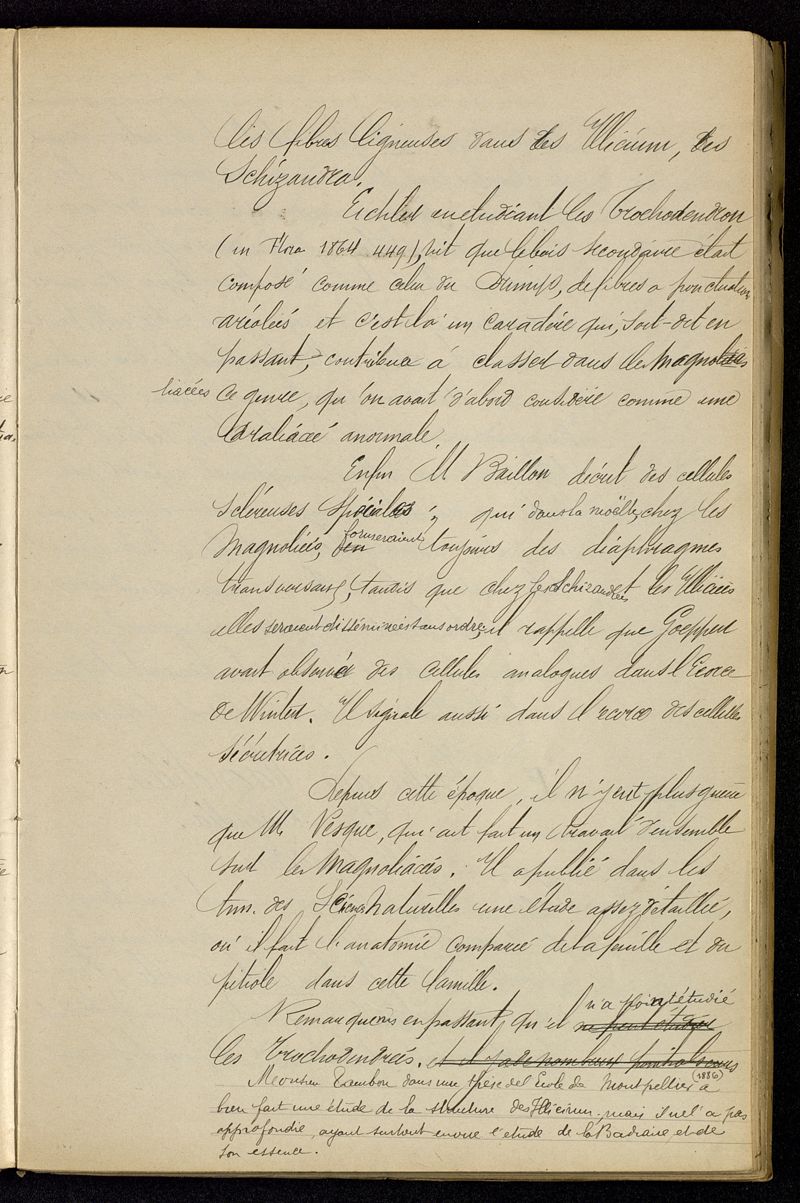 les fibres ligneuses dans les Illicium, des
Schizandra.
Eichler en étudiant les Trochodendron
(in Flora 1864 449), vit que le bois secondaire était
composé comme celui du Drimys, de fibres a ponctuations
aréolées et c'est là un caractère qui, soit-dit en
passant, contribua à classer dans les Magnoliacées
ce genre, qu'on avait d'abord considéré comme une
Araliacée anormale.
Enfin M Baillon décrit des cellules
scléreuses spéciales, qui dans la moëlle, chez les
Magnoliées, formeraient toujours des diaphragmes
transversaux, tandis que chez les Schizandrées et les Illiciées
elles seraient disséminées sans ordre; il rappelle que Goeppert
avait observé des cellules analogues dans l'Ecorce
de Winter. Il signale aussi dans l'écorce des cellules
sécrétrices.
Depuis cette époque, il n'y eut plus guère
que M. Vesque, qui ait fait un travail d'ensemble
sur les Magnoliacées. Il a publié dans les
Ann. des Scienc Naturelles une étude assez détaillée,
où il fait l'anatomie comparée de la feuille et du
pétiole dans cette famille.
Remarquons en passant, qu'il n'a point étudié
les Trochodendrées.
Monsieur Tambon dans une thèse de l'Ecole de Montpellier (1886) a
bien fait une étude de la structure des Illicium, mais il ne l'a pas
approfondie, ayant surtout en vue l'étude de la Badiane et de
son essence.